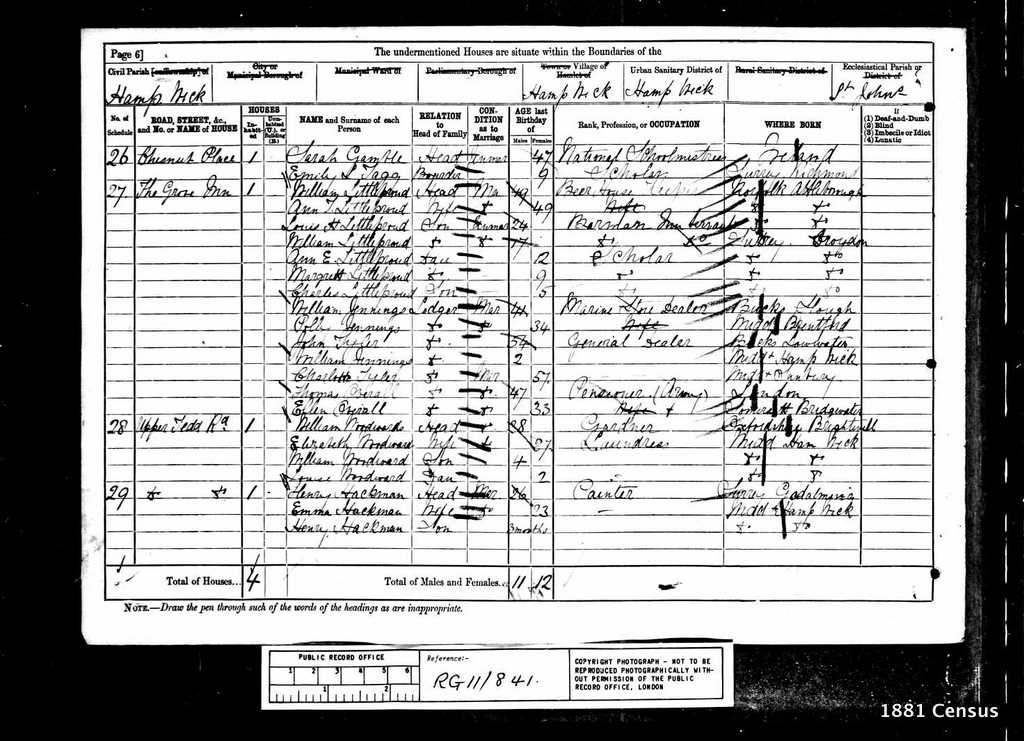 Page 6]
The undermentioned Houses are situate within the Boundaries of the
Civil Parish [or Township] of
City or
Municipal Borough of
Municipal Ward of
Parliamentary Borough of
Town or Village of
Hamlet of
Urban Sanitary District of
Rural Sanitary District of
Ecclesiastical Parish or
District of
Hamp Wick
Hamp Wick
Hamp Wick
St Johns
No. of Schedule
ROAD, STREET, &c., and No. or NAME of HOUSE
HOUSES
In-habit-ed
Unin-habited (U.), or Building (B.)
NAME and Surname of each Person
RELATION to Head of Family
CON-DITION as to Marriage
AGE last Birthday of
Males
Females
Rank, Profession, or OCCUPATION
WHERE BORN
If
(1) Deaf-and-Dumb
(2) Blind
(3) Imbecile or Idiot
(4) Lunatic
26 Chesnut Place 1 Sarah Gamble Head Unmar 47 National Schoolmistress Ireland
Emily L Tagg Boarder 9 Scholar Surrey Richmond
27 The Grove Inn 1 William Littleproud Head Mar 49 Beer House Norfolk Attleborough
Ann T Littleproud Wife do 49 Wife do do
Louis H Littleproud Son Unmar 24 Barman
William Littleproud do do 17 do do Surrey Croydon
Ann E Littleproud Dau 12 Scholar do do
Margrett Littleproud do 9 do do do
Charles Littleproud Son 5 do do
William Jennings Lodger Mar 41 Marine Store Dealor Bucks Slough
Jennings do do 34 Wife Midd Brentford
John Tyler do 54 General Dealer Bucks
William Jennings do 2 Midd Hamp Wick
Charlotte Tyler do Mar 57 Midd Hanbury
Thomas do do 47 Pensioner (Army) London
Ellen do do 33 Wife Somersett Bridgewater
28 Upper Tedd Rd 1 William Woodward Head do 28 Gardner Oxfordshire Brightwell
Elizabeth Woodward Wife do 27 Laundress Midd Ham Wick
William Woodward Son 4 do do
Louise Woodward Dau 2 do do
29 do do 1 Henry Hackman Head Mar 26 Painter Surrey Godalming
Emma Hackman Wife do 23 — Midd Hamp Wick
Henry Hackman Son 3 months do do
Total of Houses... 4
Total of Males and Females... 11 12
NOTE.—Draw the pen through such of the words of the headings as are inappropriate.
PUBLIC RECORD OFFICE
1 2 3 4 5 6
1 2
Reference:-
RG 11/841.
COPYRIGHT PHOTOGRAPH - NOT TO BE
REPRODUCED PHOTOGRAPHICALLY WITH-
OUT PERMISSION OF THE PUBLIC
RECORD OFFICE, LONDON
1881 Census